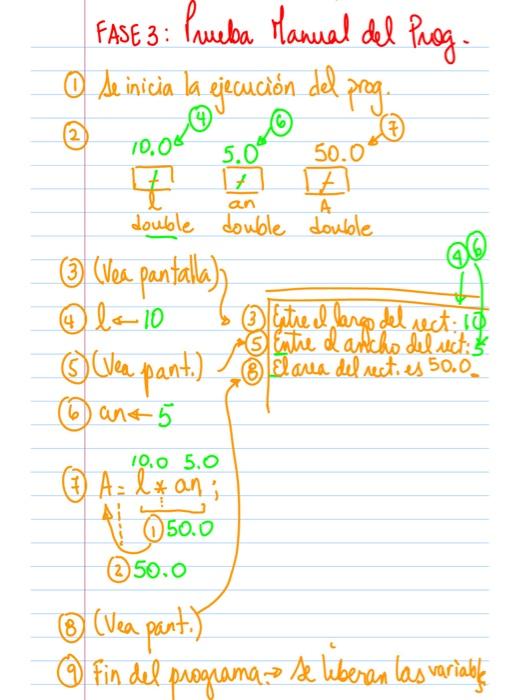 FASE 3: Prueba Manual del Prog.
① Se inicia la ejecución del prog.
②
④ ⑥ ⑦
10.0 5.0 50.0
l an A
double double double
③ (Vea pantalla)
④ ⑥
④ l ← 10
③ Entre el largo del rect: 10
⑤ Entre el ancho del rect: 5
⑧ El area del rect. es 50.0
⑤ (Vea pant.)
⑥ an ← 5
10.0 5.0
⑦ A = l * an ;
① 50.0
② 50.0
⑧ (Vea pant.)
⑨ Fin del programa → Se liberan las variables